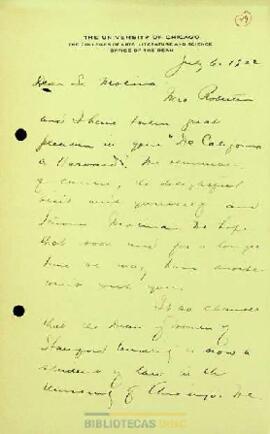 THE UNIVERSITY OF CHICAGO
THE COLLEGES OF ARTS, LITERATURE AND SCIENCE
OFFICE OF THE DEAN
July 6, 1922
Dear Sr. Molina:
Mrs Robertson
and I have taken great
pleasure in your "De California
a Harvard". We
of course, the delightful
visit with yourself and
Señora Molina. We hope
that soon and for a longer
time we may have another
visit with you.
It so chances
that the Dean of Women of
Stanford University is now a
student of law in the
University of Chicago. We
BIBLIOTECAS UDEC